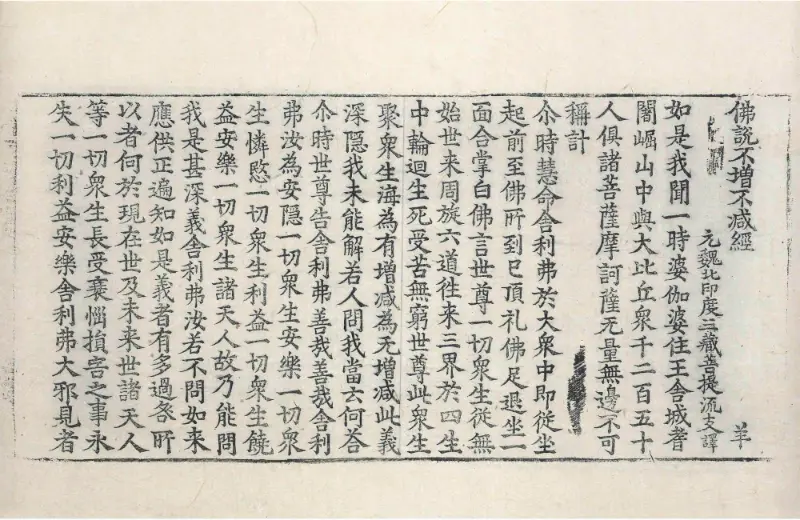 佛說不增不減經 羊
元魏北印度三藏菩提流支譯
如是我聞一時婆伽婆住王舍城耆
闍崛山中與大比丘衆千二百五十
人俱諸菩薩摩訶薩无量無邊不可
稱計
尒時慧命舍利弗於大衆中即從坐
起前至佛所到已頂礼佛足退坐一
面合掌白佛言世尊一切衆生從無
始世来周旋六道往来三界於四生
中輪迴生死受苦無窮世尊此衆生
聚衆生海為有增減為无增減此義
深隱我未能解若人問我當云何荅
尒時世尊告舍利弗善哉善哉舍利
弗汝為安隱一切衆生安樂一切衆
生憐愍一切衆生利益一切衆生饒
益安樂一切衆生諸天人故乃能問
我是甚深義舍利弗汝若不問如来
應供正遍知如是義者有多過咎所
以者何於現在世及未来世諸天人
等一切衆生長受衰惱損害之事永
失一切利益安樂舍利弗大邪見者